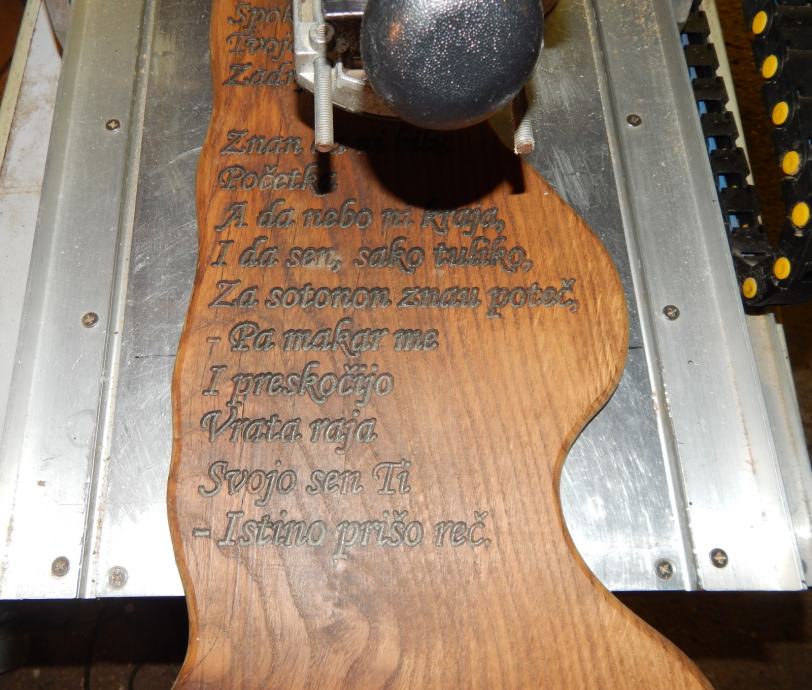 Spok
Tvoj
Zadn
Znan ni bi
Početka
A da nebo ni kraja,
I da sen, sako tuliko,
Za sotonon znau poteč,
- Pa makar me
I preskočijo
Vrata raja
Svojo sen Ti
- Istino prišo reč.